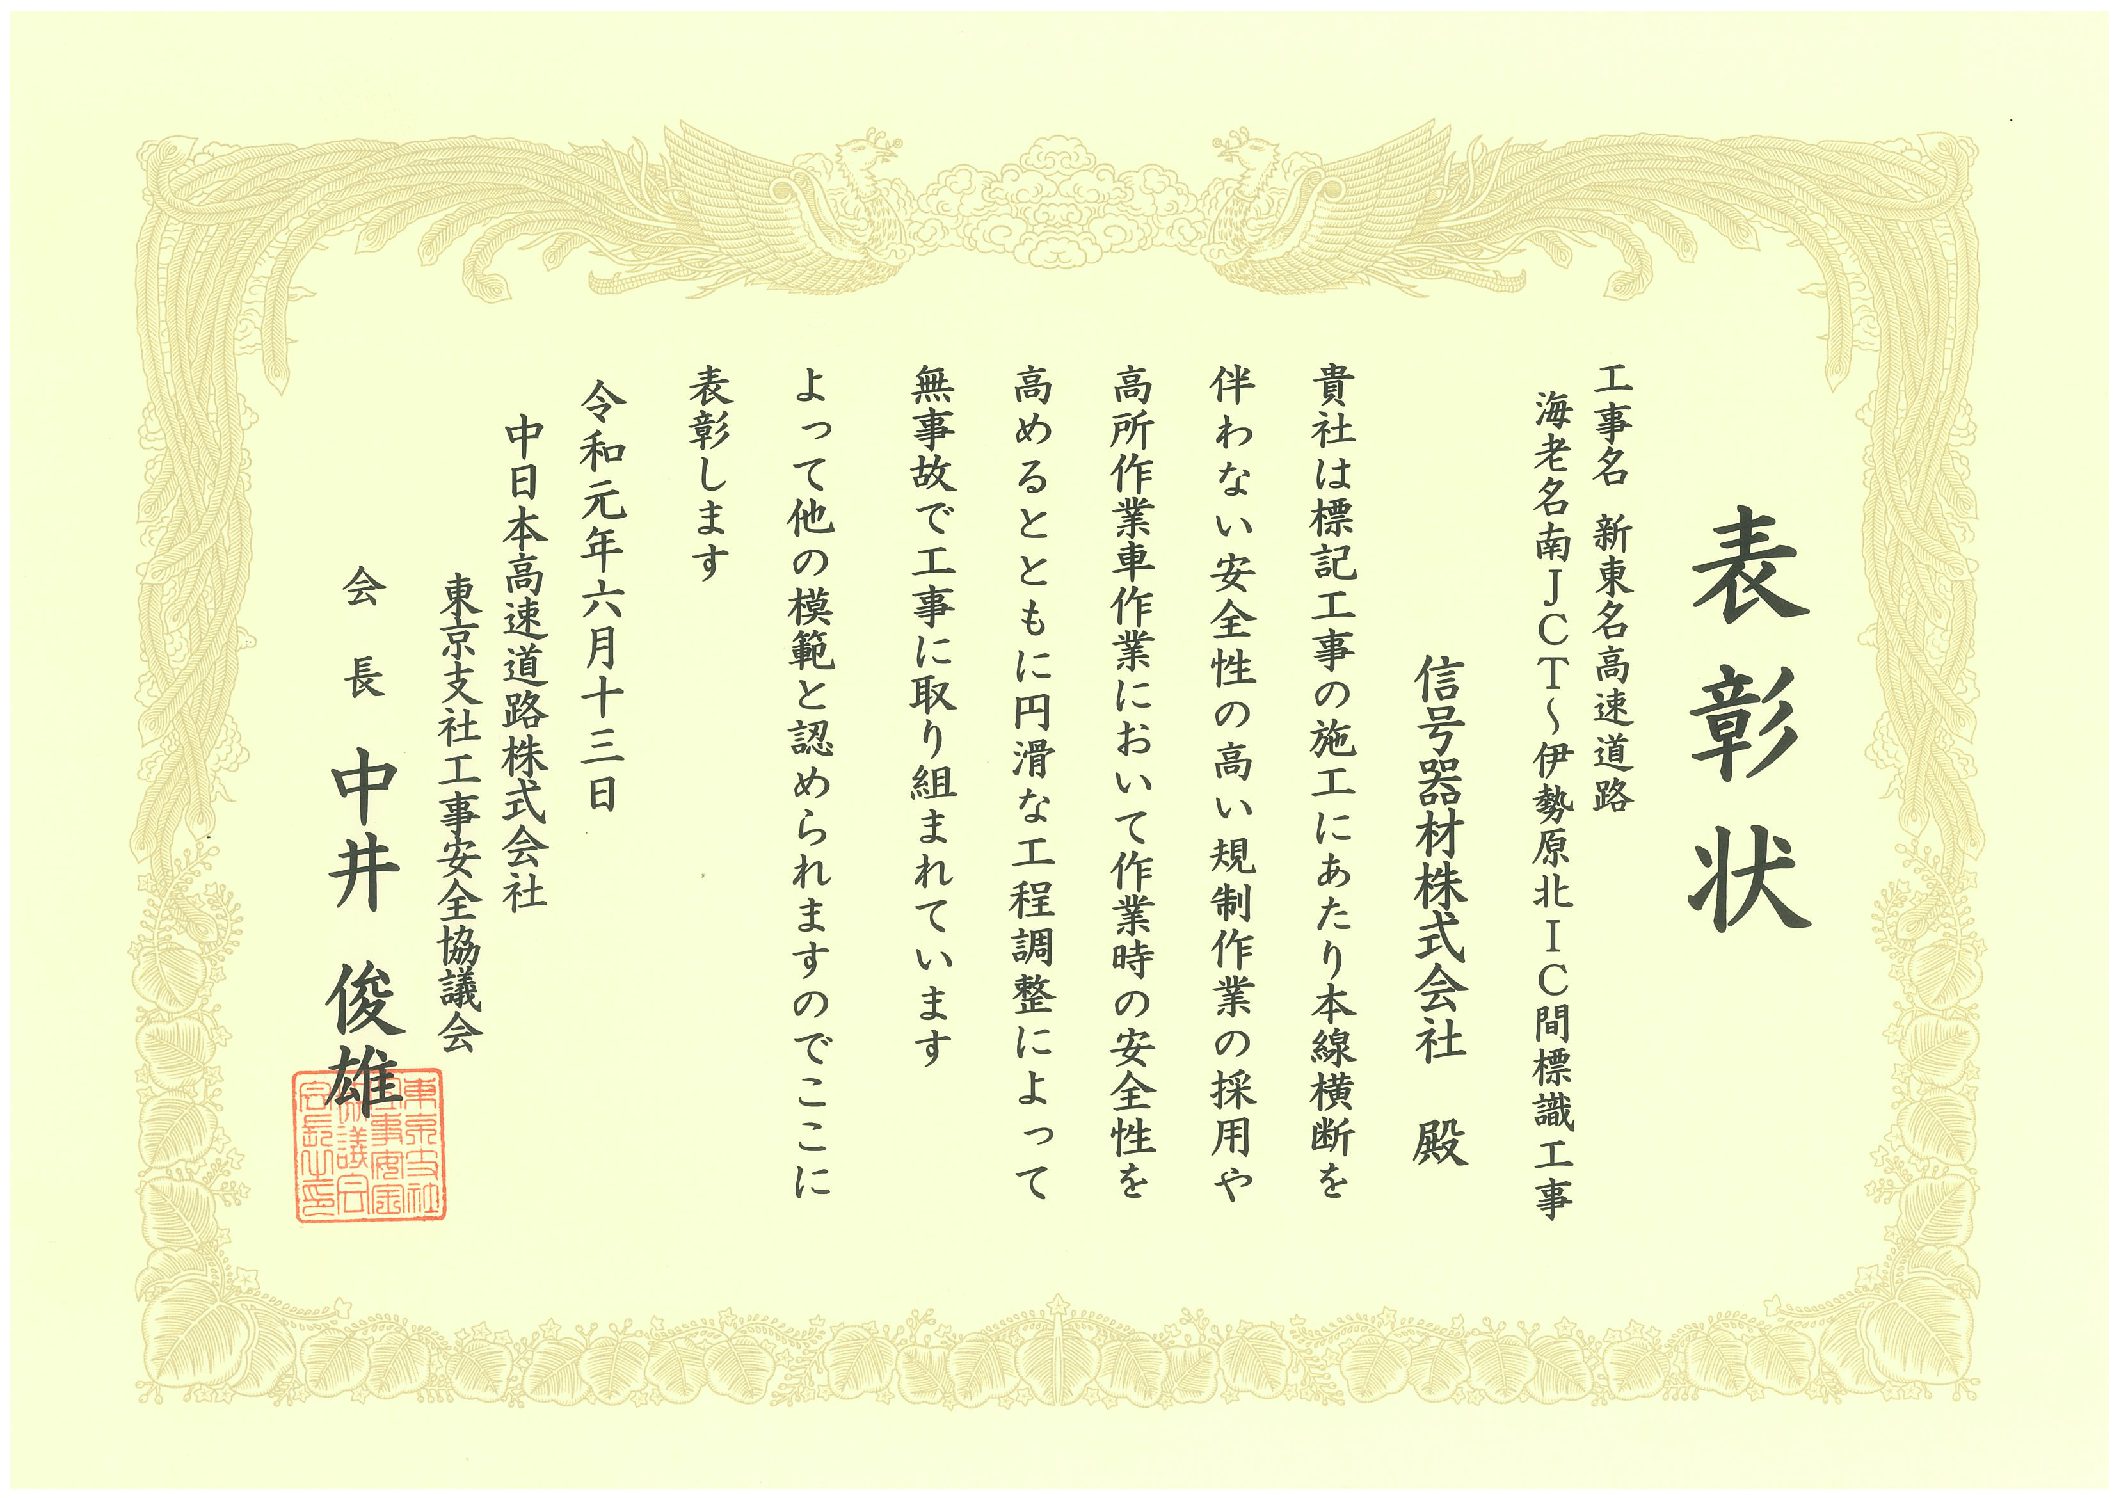 表彰状
工事名　新東名高速道路
海老名南ＪＣＴ～伊勢原北ＩＣ間標識工事
信号器材株式会社　殿
貴社は標記工事の施工にあたり本線横断を
伴わない安全性の高い規制作業の採用や
高所作業車作業において作業時の安全性を
高めるとともに円滑な工程調整によって
無事故で工事に取り組まれています
よって他の模範と認められますのでここに
表彰します
令和元年六月十三日
中日本高速道路株式会社
東京支社工事安全協議会
会長　中井　俊雄
東京支社
工事安全
協議会
会長之印